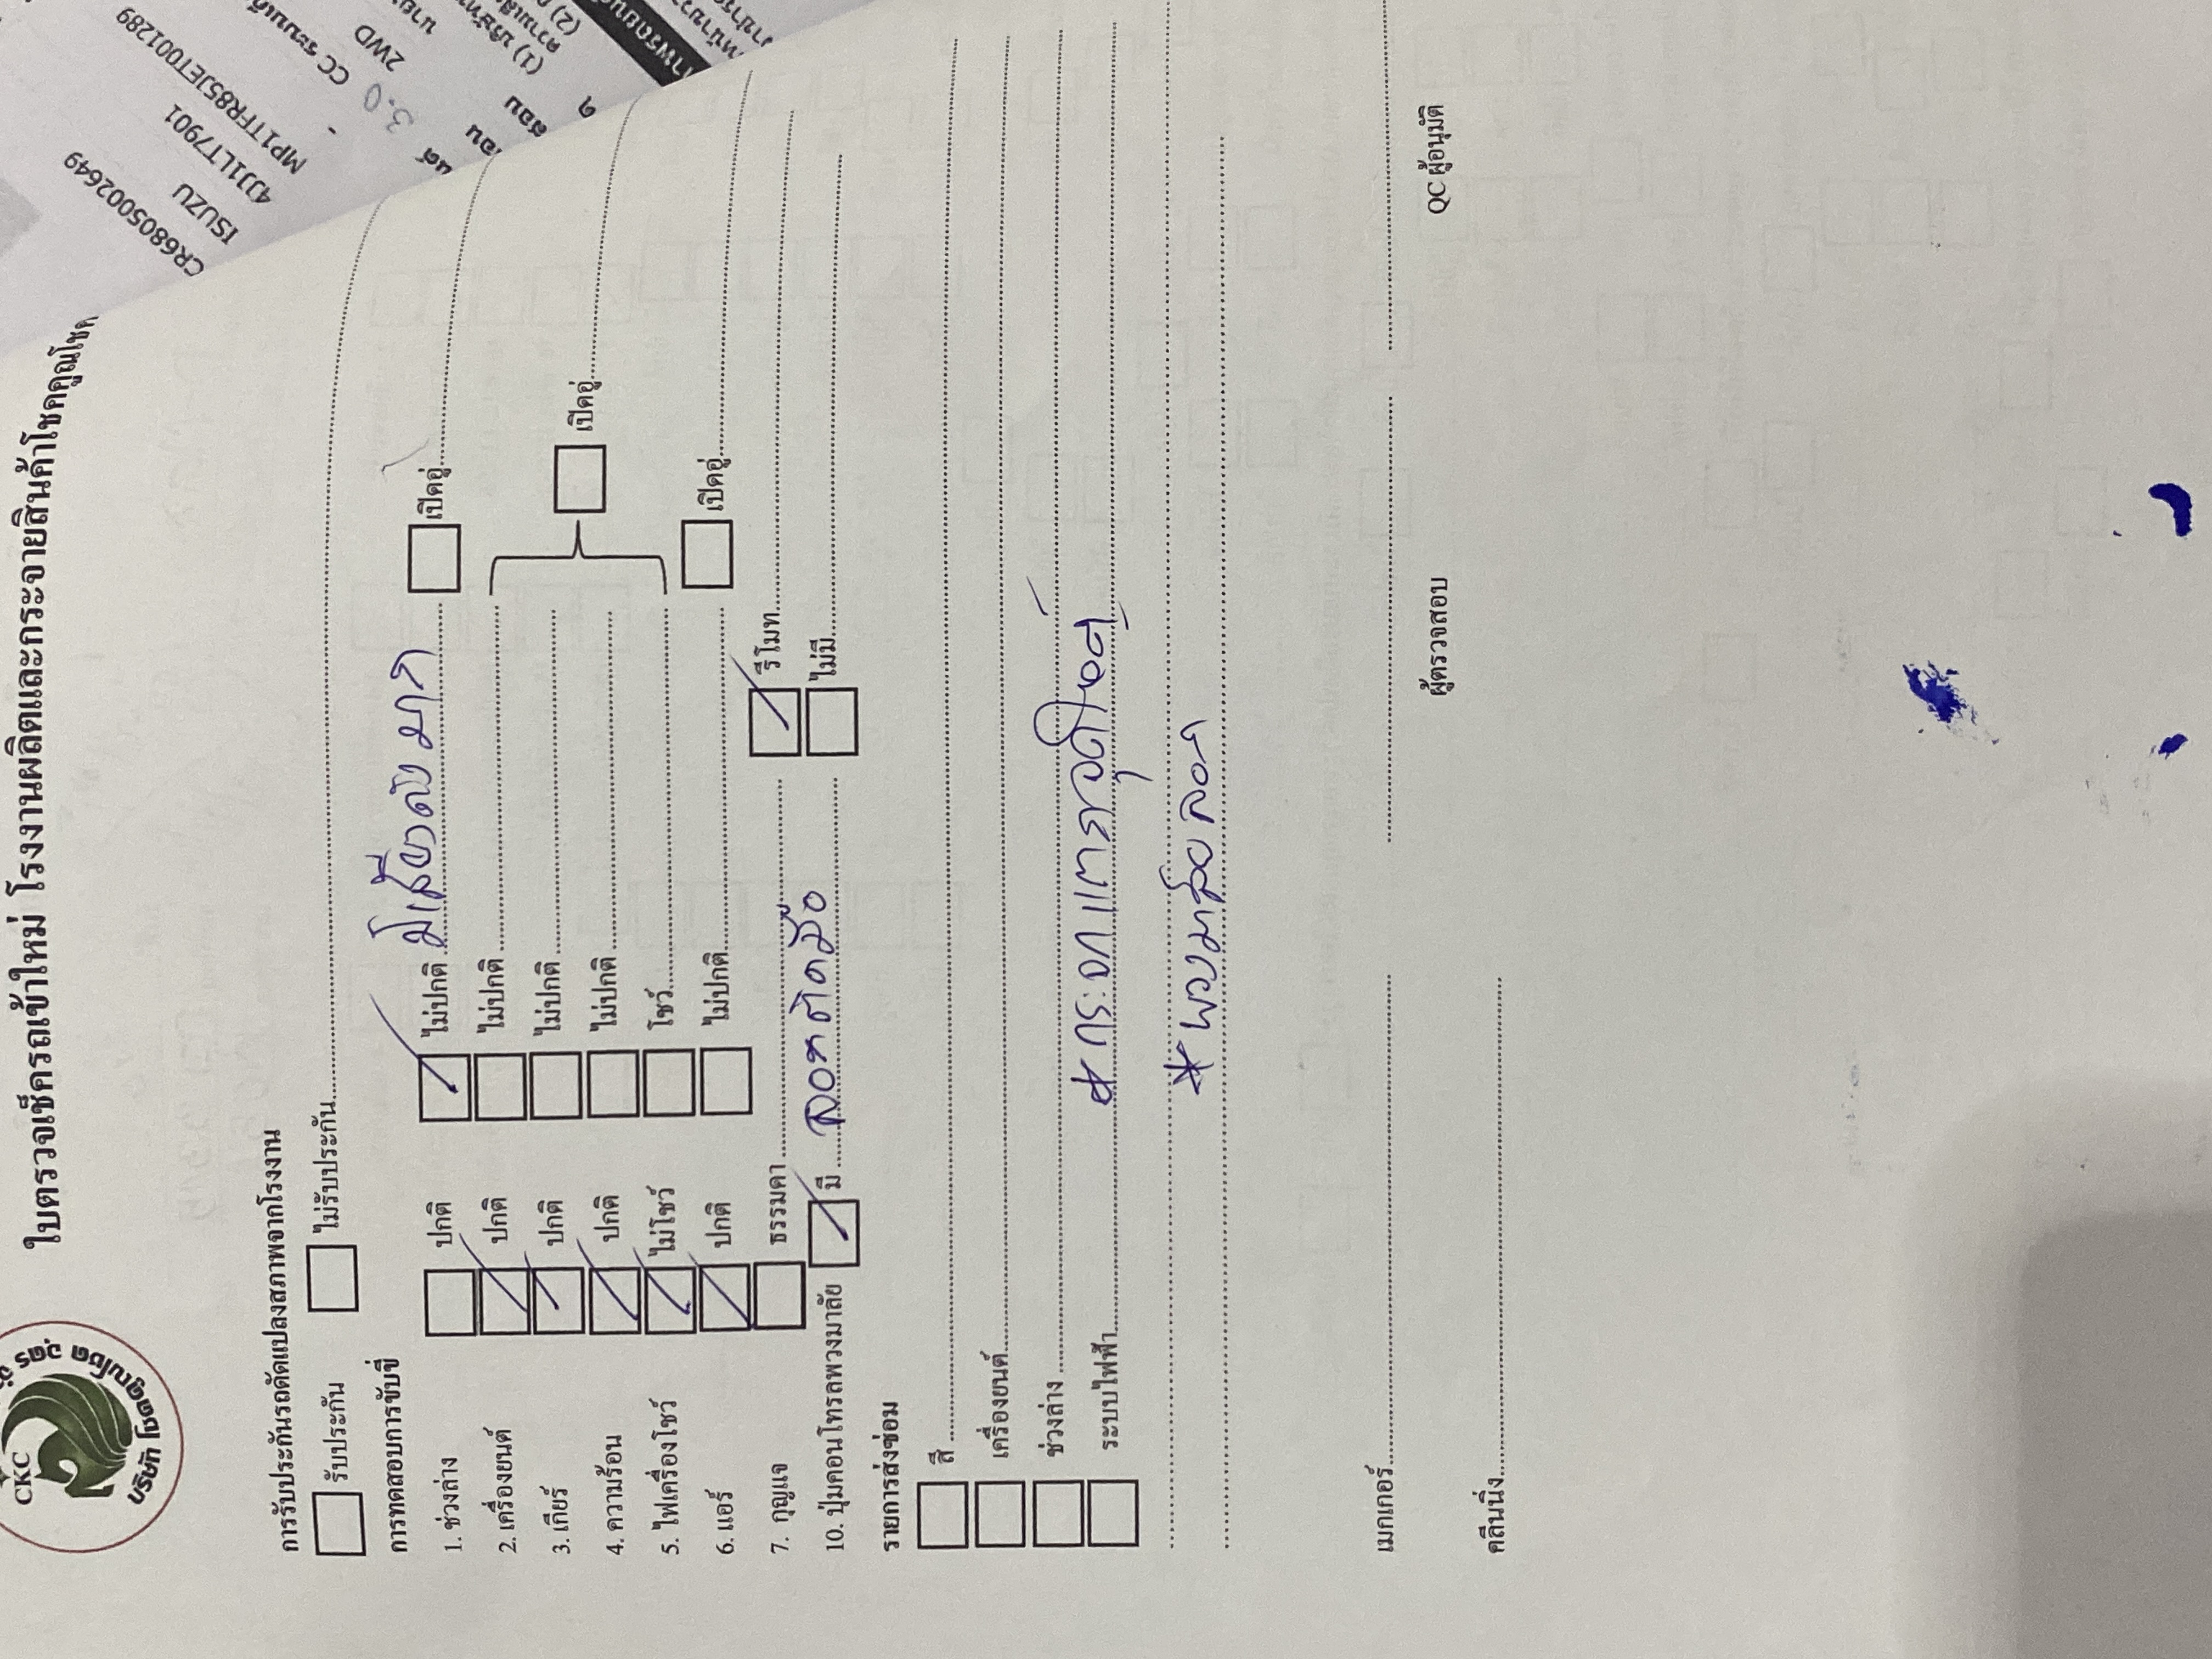 CKC
ใบตรวจเช็ครถเข้าใหม่ โรงงานผลิตและกระจายสินค้าโชคคูณโชค
การรับประกันรถดัดแปลงสภาพจากโรงงาน
รับประกัน ไม่รับประกัน
การทดสอบการขับขี่
1. ช่วงล่าง ปกติ ไม่ปกติ มีเสียงดังมาก เปิดอู่
2. เครื่องยนต์ ปกติ ไม่ปกติ
3. เกียร์ ปกติ ไม่ปกติ เปิดอู่
4. ความร้อน ปกติ ไม่ปกติ
5. ไฟเครื่องโชว์ ไม่โชว์ โชว์
6. แอร์ ปกติ ไม่ปกติ เปิดอู่
7. กุญแจ ธรรมดา รีโมท
10. ปุ่มคอนโทรลพวงมาลัย มี ลอกติดมือ ไม่มี
รายการส่งซ่อม
สี
เครื่องยนต์
ช่วงล่าง
ระบบไฟฟ้า * กระจกแตก
* พวงมาลัยลอก
เมกเกอร์ ผู้ตรวจสอบ QC ผู้อนุมัติ
คลีนนิ่ง
CR6805002649
ISUZU
4JJ1LT7901
MP1TFR85JET001289
3.0 CC
2WD